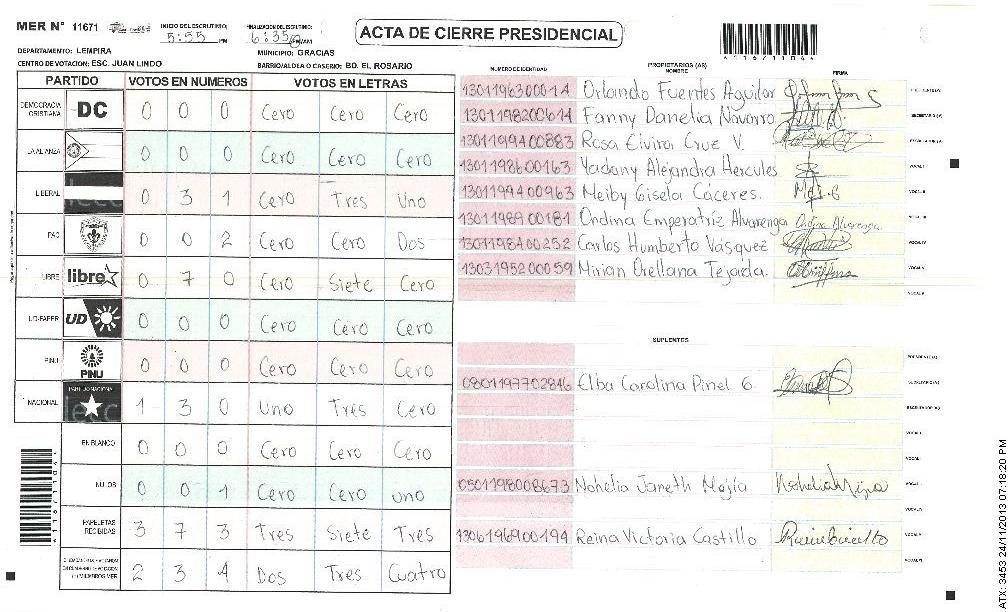 MER N° 11671
INICIO DEL ESCRUTINIO: 5:55 PM
FINALIZACION DEL ESCRUTINIO: 6:35
ACTA DE CIERRE PRESIDENCIAL
DEPARTAMENTO: LEMPIRA
MUNICIPIO: GRACIAS
CENTRO DE VOTACION: ESC. JUAN LINDO
BARRIO/ALDEA O CASERIO: BD. EL ROSARIO
PARTIDO VOTOS EN NUMEROS VOTOS EN LETRAS
DEMOCRACIA CRISTIANA DC 0 0 0 Cero Cero Cero
LA ALIANZA 0 0 0 Cero Cero Cero
LIBERAL 0 3 1 Cero Tres Uno
PAC 0 0 2 Cero Cero Dos
LIBRE libre 0 7 0 Cero Siete Cero
UD-FAPER UD 0 0 0 Cero Cero Cero
PINU PINU 0 0 0 Cero Cero Cero
NACIONAL PARTIDO NACIONAL 1 3 0 Uno Tres Cero
EN BLANCO 0 0 0 Cero Cero Cero
NULOS 0 0 1 Cero Cero uno
PAPELETAS RECIBIDAS 3 7 3 Tres Siete Tres
2 3 4 Dos Tres Cuatro
NUMERO DE IDENTIDAD
PROPIETARIOS (AS)
NOMBRE
FIRMA
1301196300014 Orlando Fuentes Aguilar PRESIDENTE(A)
1301198200614 Fanny Danelia Navarro SECRETARIO (A)
1301199400883 Rosa Elvira Cruz V. ESCRUTADOR (A)
1301198600163 Yadany Alejandra Hercules VOCAL I
1301199400963 Meiby Gisela Cáceres. VOCAL II
1301198900181 Ondina Emperatriz Alvarenga Ondina Alvarenga. VOCAL III
1301198400252 Carlos Humberto Vásquez VOCAL IV
1303195200059 Mirian Orellana Tejada. VOCAL V
SUPLENTES
PRESIDENTE(A)
0801197702846 Elba Carolina Pinel G. SECRETARIO (A)
ESCRUTADOR(A)
VOCAL I
0501198008673 Nohelia Janeth Mejía
1306196900194 Reina Victoria Castillo
ATX: 3453 24/11/2013 07:18:20 PM